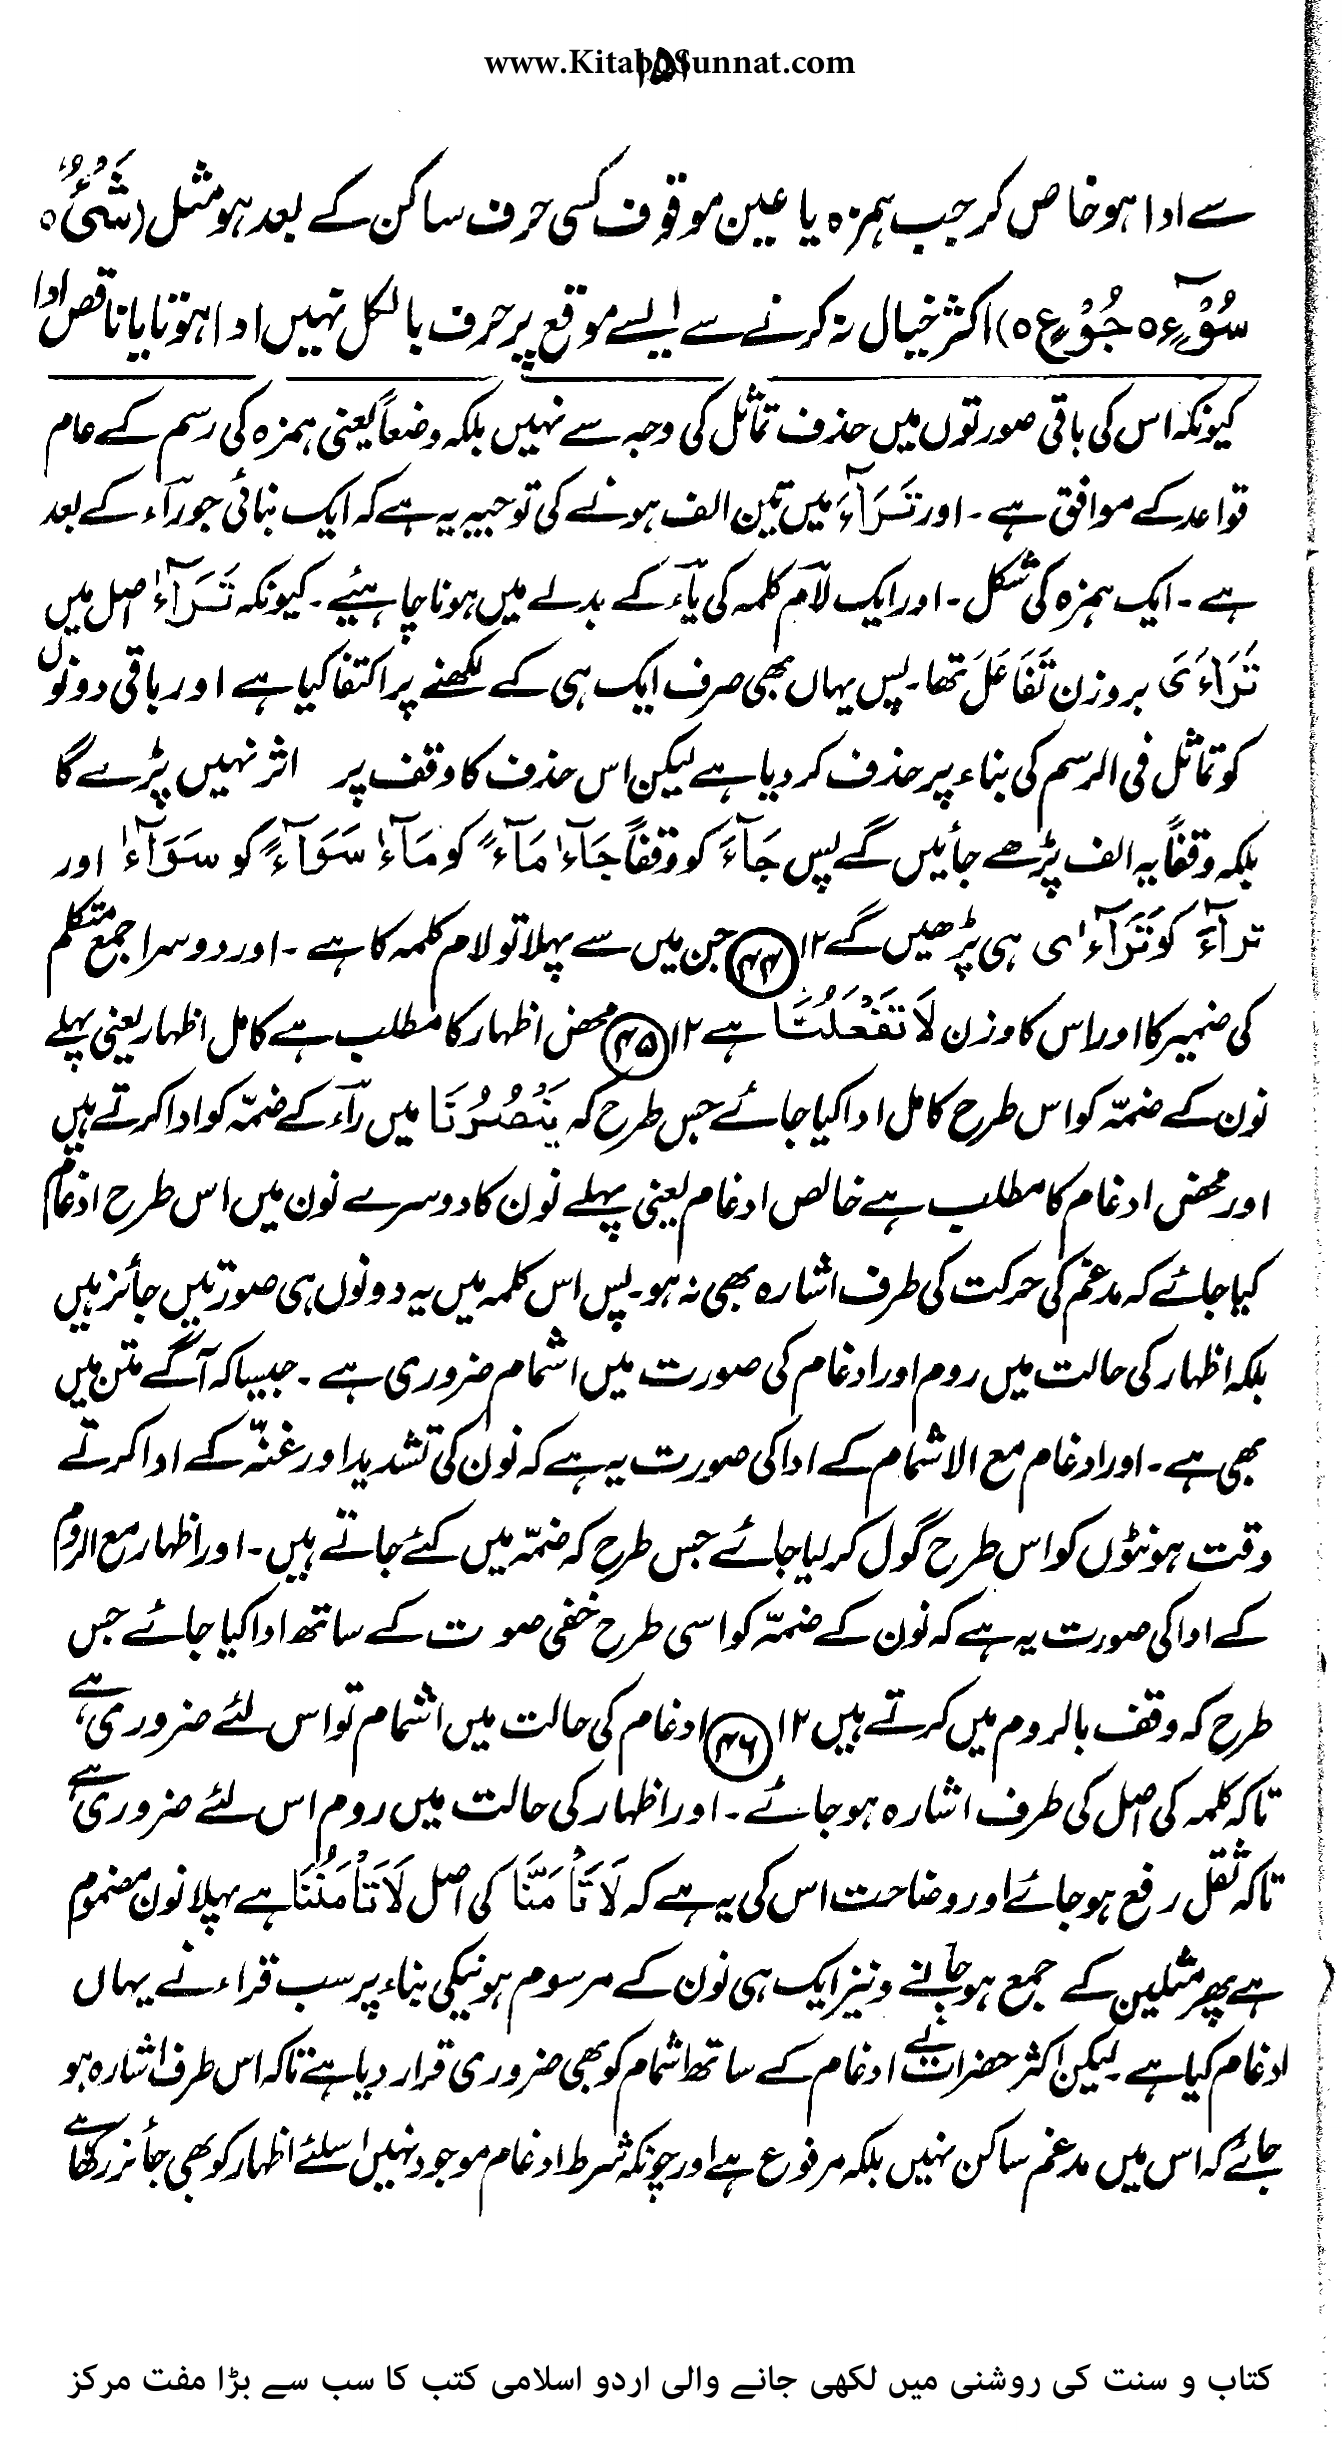 www.KitaboSunnat.com
۱۵۱
سے ادا ہو خاص کر جب ہمزہ یا عین موقوف کسی حرف ساکن کے بعد ہو مثل (شَیْءٌ ہ
سُوْٓءٍ ہ جُوْعٍ ہ) اکثر خیال نہ کرنے سے ایسے موقع پر حرف بالکل نہیں ادا ہوتا یا ناقص ادا
کیونکہ اس کی باقی صورتوں میں حذف تماثل کی وجہ سے نہیں بلکہ وضعاً یعنی ہمزہ کی رسم کے عام
قواعد کے موافق ہے۔ اور تَرَآءَ میں تین الف ہونے کی توجیہ یہ ہے کہ ایک بنائی جو رآء کے بعد
ہے۔ ایک ہمزہ کی شکل۔ اور ایک لآم کلمہ کی یآء کے بدلے میں ہونا چاہیئے۔ کیونکہ تَرَآءٰ اصل میں
تَرَاءَیَ بروزن تَفَاعَلَ تھا۔ پس یہاں بھی صرف ایک ہی کے لکھنے پر اکتفا کیا ہے اور باقی دونوں
کو تماثل فی الرسم کی بناء پر حذف کر دیا ہے لیکن اس حذف کا وقف پر اثر نہیں پڑے گا
بلکہ وقفاً یہ الف پڑھے جائیں گے پس جَآءَ کو وقفاً جَآءٰ مَآءً کو مَآءٰ سَوَآءً کو سَوَآءٰ اور
ترآءَ کو تَرَآءٰی ہی پڑھیں گے ۱۲ (۴۴) جن میں سے پہلا تو لام کلمہ کا ہے۔ اور دوسرا جمع متکلم
کی ضمیر کا اور اس کا وزن لَا تَفْعَلُنَا ہے ۱۲ (۴۵) محض اظہار کا مطلب ہے کامل اظہار یعنی پہلے
نون کے ضمّہ کو اس طرح کامل ادا کیا جائے جس طرح کہ یَنْصُرُنَا میں رآء کے ضمّہ کو ادا کرتے ہیں
اور محض ادغام کا مطلب ہے خالص ادغام یعنی پہلے نون کا دوسرے نون میں اس طرح ادغام
کیا جائے کہ مدغم کی حرکت کی طرف اشارہ بھی نہ ہو۔ پس اس کلمہ میں یہ دونوں ہی صورتیں جائز ہیں
بلکہ اظہار کی حالت میں روم اور ادغام کی صورت میں اشمام ضروری ہے۔ جیسا کہ آگے متن میں
بھی ہے۔ اور ادغام مع الاشمام کے ادا کی صورت یہ ہے کہ نون کی تشدید اور غنّہ کے ادا کرتے
وقت ہونٹوں کو اس طرح گول کر لیا جائے جس طرح کہ ضمّہ میں کئے جاتے ہیں۔ اور اظہار مع الروم
کے ادا کی صورت یہ ہے کہ نون کے ضمّہ کو اسی طرح خفی صوت کے ساتھ ادا کیا جائے جس
طرح کہ وقف بالروم میں کرتے ہیں ۱۲ (۴۶) ادغام کی حالت میں اشمام تو اس لئے ضروری ہے،
تاکہ کلمہ کی اصل کی طرف اشارہ ہو جائے۔ اور اظہار کی حالت میں روم اس لئے ضروری ہے
تاکہ ثقل رفع ہو جائے اور وضاحت اس کی یہ ہے کہ لَا تَاْمَنَّا کی اصل لَا تَاْمَنُنَا ہے پہلا نون مضموم
ہے پھر مثلین کے جمع ہو جانے و نیز ایک ہی نون کے مرسوم ہونیکی بناء پر سب قراء نے یہاں
ادغام کیا ہے۔ لیکن اکثر حضرات نے ادغام کے ساتھ اشمام کو بھی ضروری قرار دیا ہے تاکہ اس طرف اشارہ ہو
جائے کہ اس میں مدغم ساکن نہیں بلکہ مرفوع ہے اور چونکہ شرط ادغام موجود نہیں اسلئے اظہار کو بھی جائز رکھا ہے
کتاب و سنت کی روشنی میں لکھی جانے والی اردو اسلامی کتب کا سب سے بڑا مفت مرکز